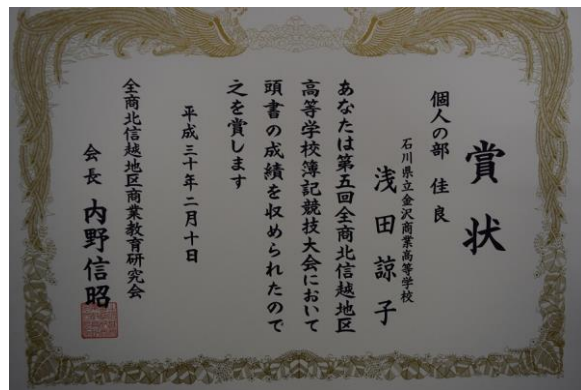 賞状
個人の部 佳良
石川県立金沢商業高等学校
浅田諒子
あなたは第五回全商北信越地区
高等学校簿記競技大会において
頭書の成績を収められたので
之を賞します
平成三十年二月十日
全商北信越地区商業教育研究会
会長 内野信昭